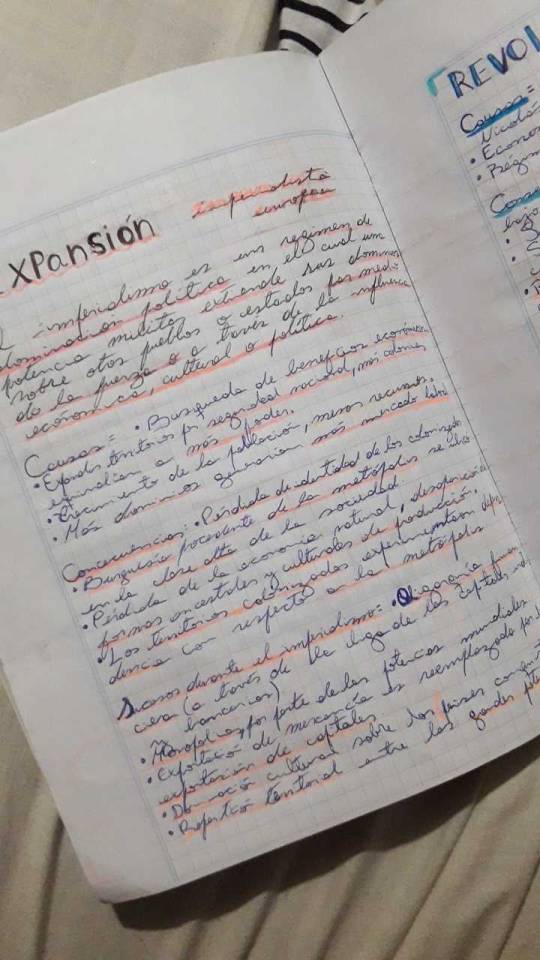 XPansión imperialista
europea
l imperialismo es un regimen de
dominación política en el cual una
potencia militar extiende sus dominios
sobre otos pueblos o estados por medio
de la fuerza o a traves de la influencia
económica, cultural o política.
Causas= • Busqueda de beneficios económicos
• Expandir territorios por seguridad nacional, más colonias
equivalian a más poder.
• Crecimiento de la población, menos recursos.
• Más dominios generarian más mercado
Concecuencias: • Pérdida de identidad de los colonizados
• Burguesia procedente de la metrópolis se
en la clase alta de la sociedad.
• Pérdida de la economia natural, desaparición
formas ancestrales y culturales de producción.
• Los territorios colonizados experimentan depen
dencia con respecto a la metrópolis
Sucesos durante el imperialismo: • Oligarquía finan
ciera (a través de la liga de los capitales
bancarios)
• Monopolios por parte de las potencias mundiales
• Exportación de mercancía es reemplazada por
exportación de capitales
• Dominación cultural sobre los paises
• Repartición territorial entre las grandes
REVOL
Causas=
• Nicolás
• Econom
• Régim
Cons
bajo